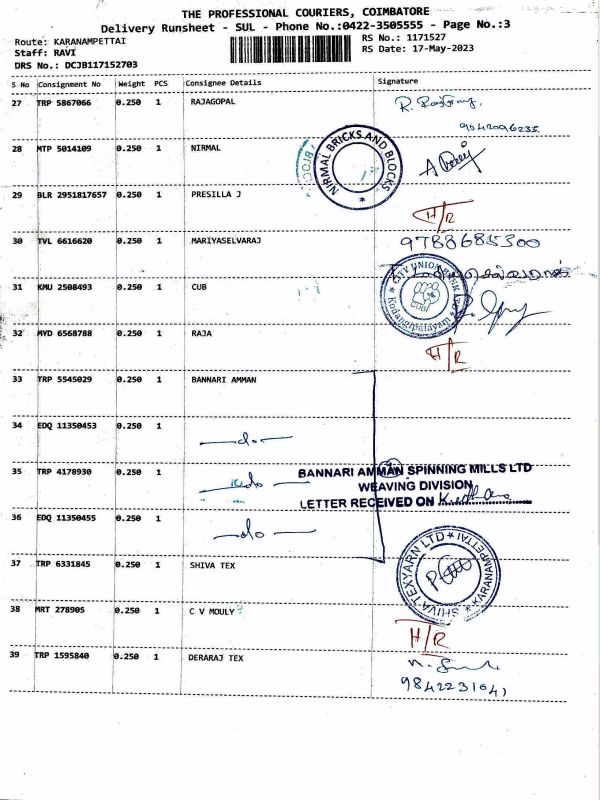 THE PROFESSIONAL COURIERS, COIMBATORE
Delivery Runsheet - SUL - Phone No.:0422-3505555 - Page No.:3
Route: KARANAMPETTAI
Staff: RAVI
DRS No.: DCJB117152703
RS No.: 1171527
RS Date: 17-May-2023
S No Consignment No Weight PCS Consignee Details Signature
27 TRP 5867066 0.250 1 RAJAGOPAL
9842096235
28 MTP 5014109 0.250 1 NIRMAL
NIRMAL BRICKS AND BLOCKS
29 BLR 2951817657 0.250 1 PRESILLA J
H/R
30 TVL 6616620 0.250 1 MARIYASELVARAJ
9788685300
31 KMU 2508493 0.250 1 CUB
CITY UNION BANK
CUB
Kodangipalayam
32 MYD 6568788 0.250 1 RAJA
H/R
33 TRP 5545029 0.250 1 BANNARI AMMAN
34 EDQ 11350453 0.250 1
-do-
35 TRP 4178930 0.250 1
-do-
BANNARI AMMAN SPINNING MILLS LTD
WEAVING DIVISION
LETTER RECEIVED ON
36 EDQ 11350455 0.250 1
-do-
37 TRP 6331845 0.250 1 SHIVA TEX
SHIVA TEXYARN LTD
KARANAMPETTAI
38 MRT 278905 0.250 1 C V MOULY
H/R
39 TRP 1595840 0.250 1 DERARAJ TEX
9842231041